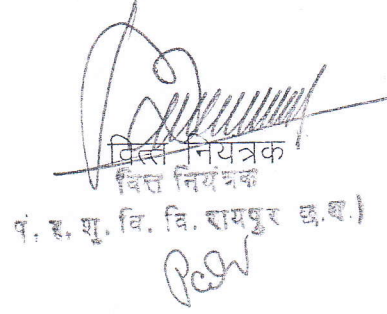 वित्त नियंत्रक
वित्त नियंत्रक
पं. र. शु. वि. वि. रायपुर छ.ग.)